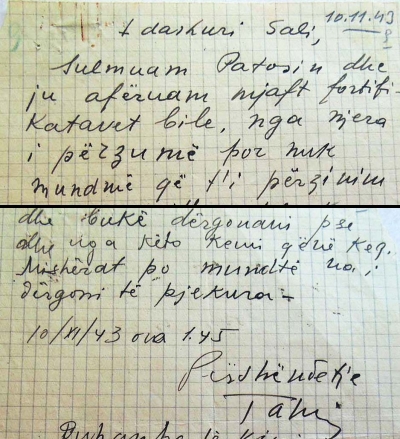 10.11.43
I dashuri Sali,
Sulmuam Patosin dhe
ju afëruam mjaft fortifi-
Katavet bile, nga njera
i përzumë por nuk
mundmë që t'i përzinim
dhe bukë dërgonani pse
dhe nga këto kemi qënë keq.
Mishërat po mundtë na i
dërgoni të pjekura -
10/XI/43 ora 1.45
Përshëndetje